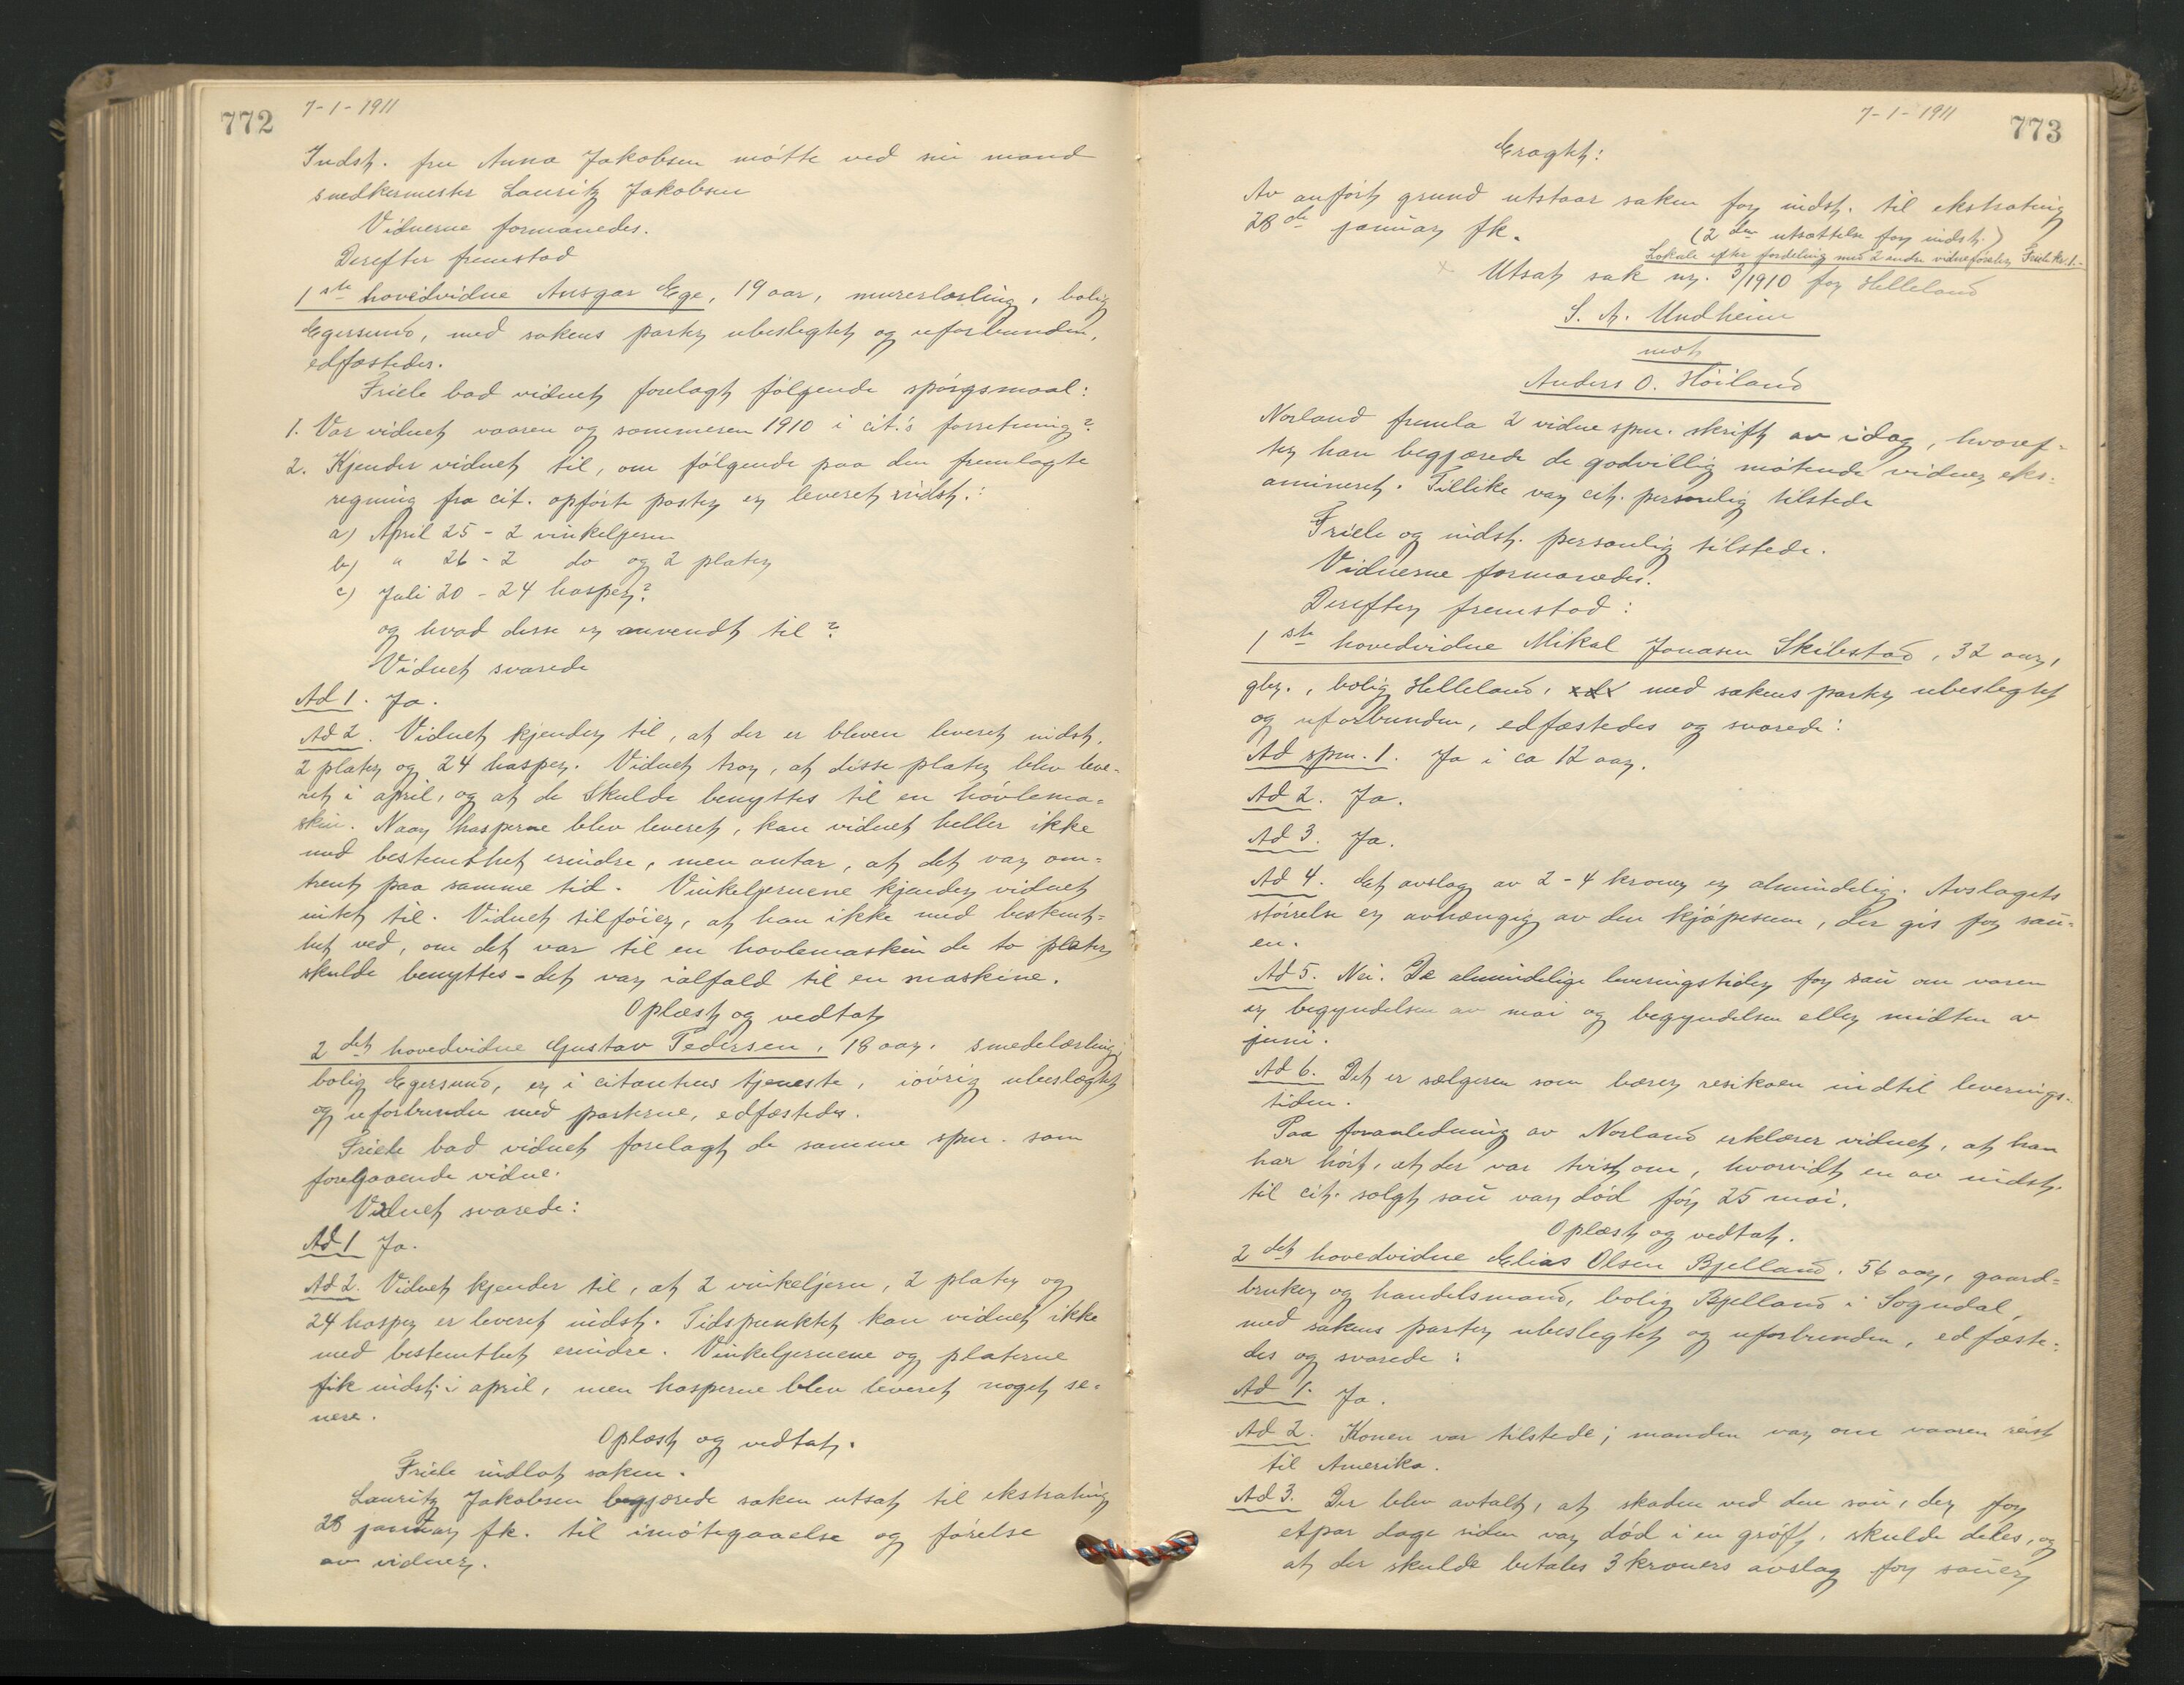 772
7-1-1911
Indst. fru Anna Jakobsen møtte ved sin mand
snedkermester Lauritz Jakobsen
Vidnerne formanedes.
Derefter fremstod
1ste hovedvidne Ansgar Ege, 19 aar, murerlærling, bolig
Egersund, med sakens parter ubeslegtet og uforbunden,
edfæstedes.
Friele bad vidnet forelagt følgende spørgsmaal:
1. Var vidnet vaaren og sommeren 1910 i cit.'s forretning?
2. Kjender vidnet til, om følgende paa den fremlagte
regning fra cit. opførte poster er leveret indst.:
a) April 25 - 2 vinkeljern
b) " 26 - 2 do og 2 plater
c) Juli 20 - 24 hasper?
og hvad disse er anvendt til?
Vidnet svarede
Ad 1. Ja.
Ad 2. Vidnet kjender til, at der er bleven leveret indst.
2 plater og 24 hasper. Vidnet tror, at disse plater blev leve-
ret i april, og at de skulde benyttes til en høvlema-
skin. Naar hasperne blev leveret, kan vidnet heller ikke
med bestemthet erindre, men antar, at det var om-
trent paa samme tid. Vinkeljernene kjender vidnet
intet til. Vidnet tilføier, at han ikke med bestemt-
het ved, om det var til en høvlemaskin de to plater
skulde benyttes - det var ialfald til en maskine.
Oplæst og vedtat
2det hovedvidne Gustav Pedersen, 18 aar, smedelærling,
bolig Egersund, er i citantens tjeneste, iøvrig ubeslægtet
og uforbunden med parterne, edfæstedes.
Friele bad vidnet forelagt de samme spm. som
foregaaende vidne.
Vidnet svarede:
Ad 1 Ja.
Ad 2. Vidnet kjender til, at 2 vinkeljern, 2 plater og
24 hasper er leveret indst. Tidspunktet kan vidnet ikke
med bestemthet erindre. Vinkeljernene og platerne
fik indst. i april, men hasperne blev leveret noget se-
nere.
Oplæst og vedtat.
Friele indlot saken.
Lauritz Jakobsen begjærede saken utsat til ekstrating
28 januar fk. til imøtegaaelse og førelse
av vidner.
7-1-1911
773
Eragtet:
Av anført grund utstaar saken for indst. til ekstrating
28de januar fk.
(2den utsættelse for indst.)
Lokale efter fordeling med 2 andre vidneførsler, Friele kr. 1.-
x Utsat sak nr. 3/1910 for Helleland
S. A. Undheim
mot
Anders O. Høiland
Norland fremla 2 vidne spm. skrift av idag, hvoref-
ter han begjærede de godvillig møtende vidner eks-
amineret. Tillike var cit. personlig tilstede
Friele og indst. personlig tilstede.
Vidnerne formanedes.
Derefter fremstod:
1ste hovedvidne Mikal Jonasen Skibstad, 32 aar,
gbr., bolig Helleland, med sakens parter ubeslegtet
og uforbunden, edfæstedes og svarede:
Ad spm. 1. Ja i ca 12 aar.
Ad 2. Ja.
Ad 3. Ja.
Ad 4. Et avslag av 2-4 kroner er almindelig. Avslagets
størrelse er avhængig av den kjøpesum, der gis for sau-
en.
Ad 5. Nei. De almindelige leveringstider for sau om vaaren
er begyndelsen av mai og begyndelsen eller midten av
juni.
Ad 6. Det er sælgeren som bærer resikoen indtil leverings-
tiden.
Paa foranledning av Norland erklærer vidnet, at han
har hørt, at der var tvist om, hvorvidt en av indst.
til cit. solgt sau var død før 25 mai.
Oplæst og vedtat.
2det hovedvidne Elias Olsen Bjelland, 56 aar, gaard-
bruker og handelsmand, bolig Bjelland i Sogndal,
med sakens parter ubeslegtet og uforbunden, edfæste-
des og svarede:
Ad 1. Ja.
Ad 2. Konen var tilstede; manden var om vaaren reist
til Amerika.
Ad 3. Der blev avtalt, at skaden ved den sau, der for
etpar dage siden var død i en grøft, skulde deles, og
at der skulde betales 3 kroners avslag for sauer